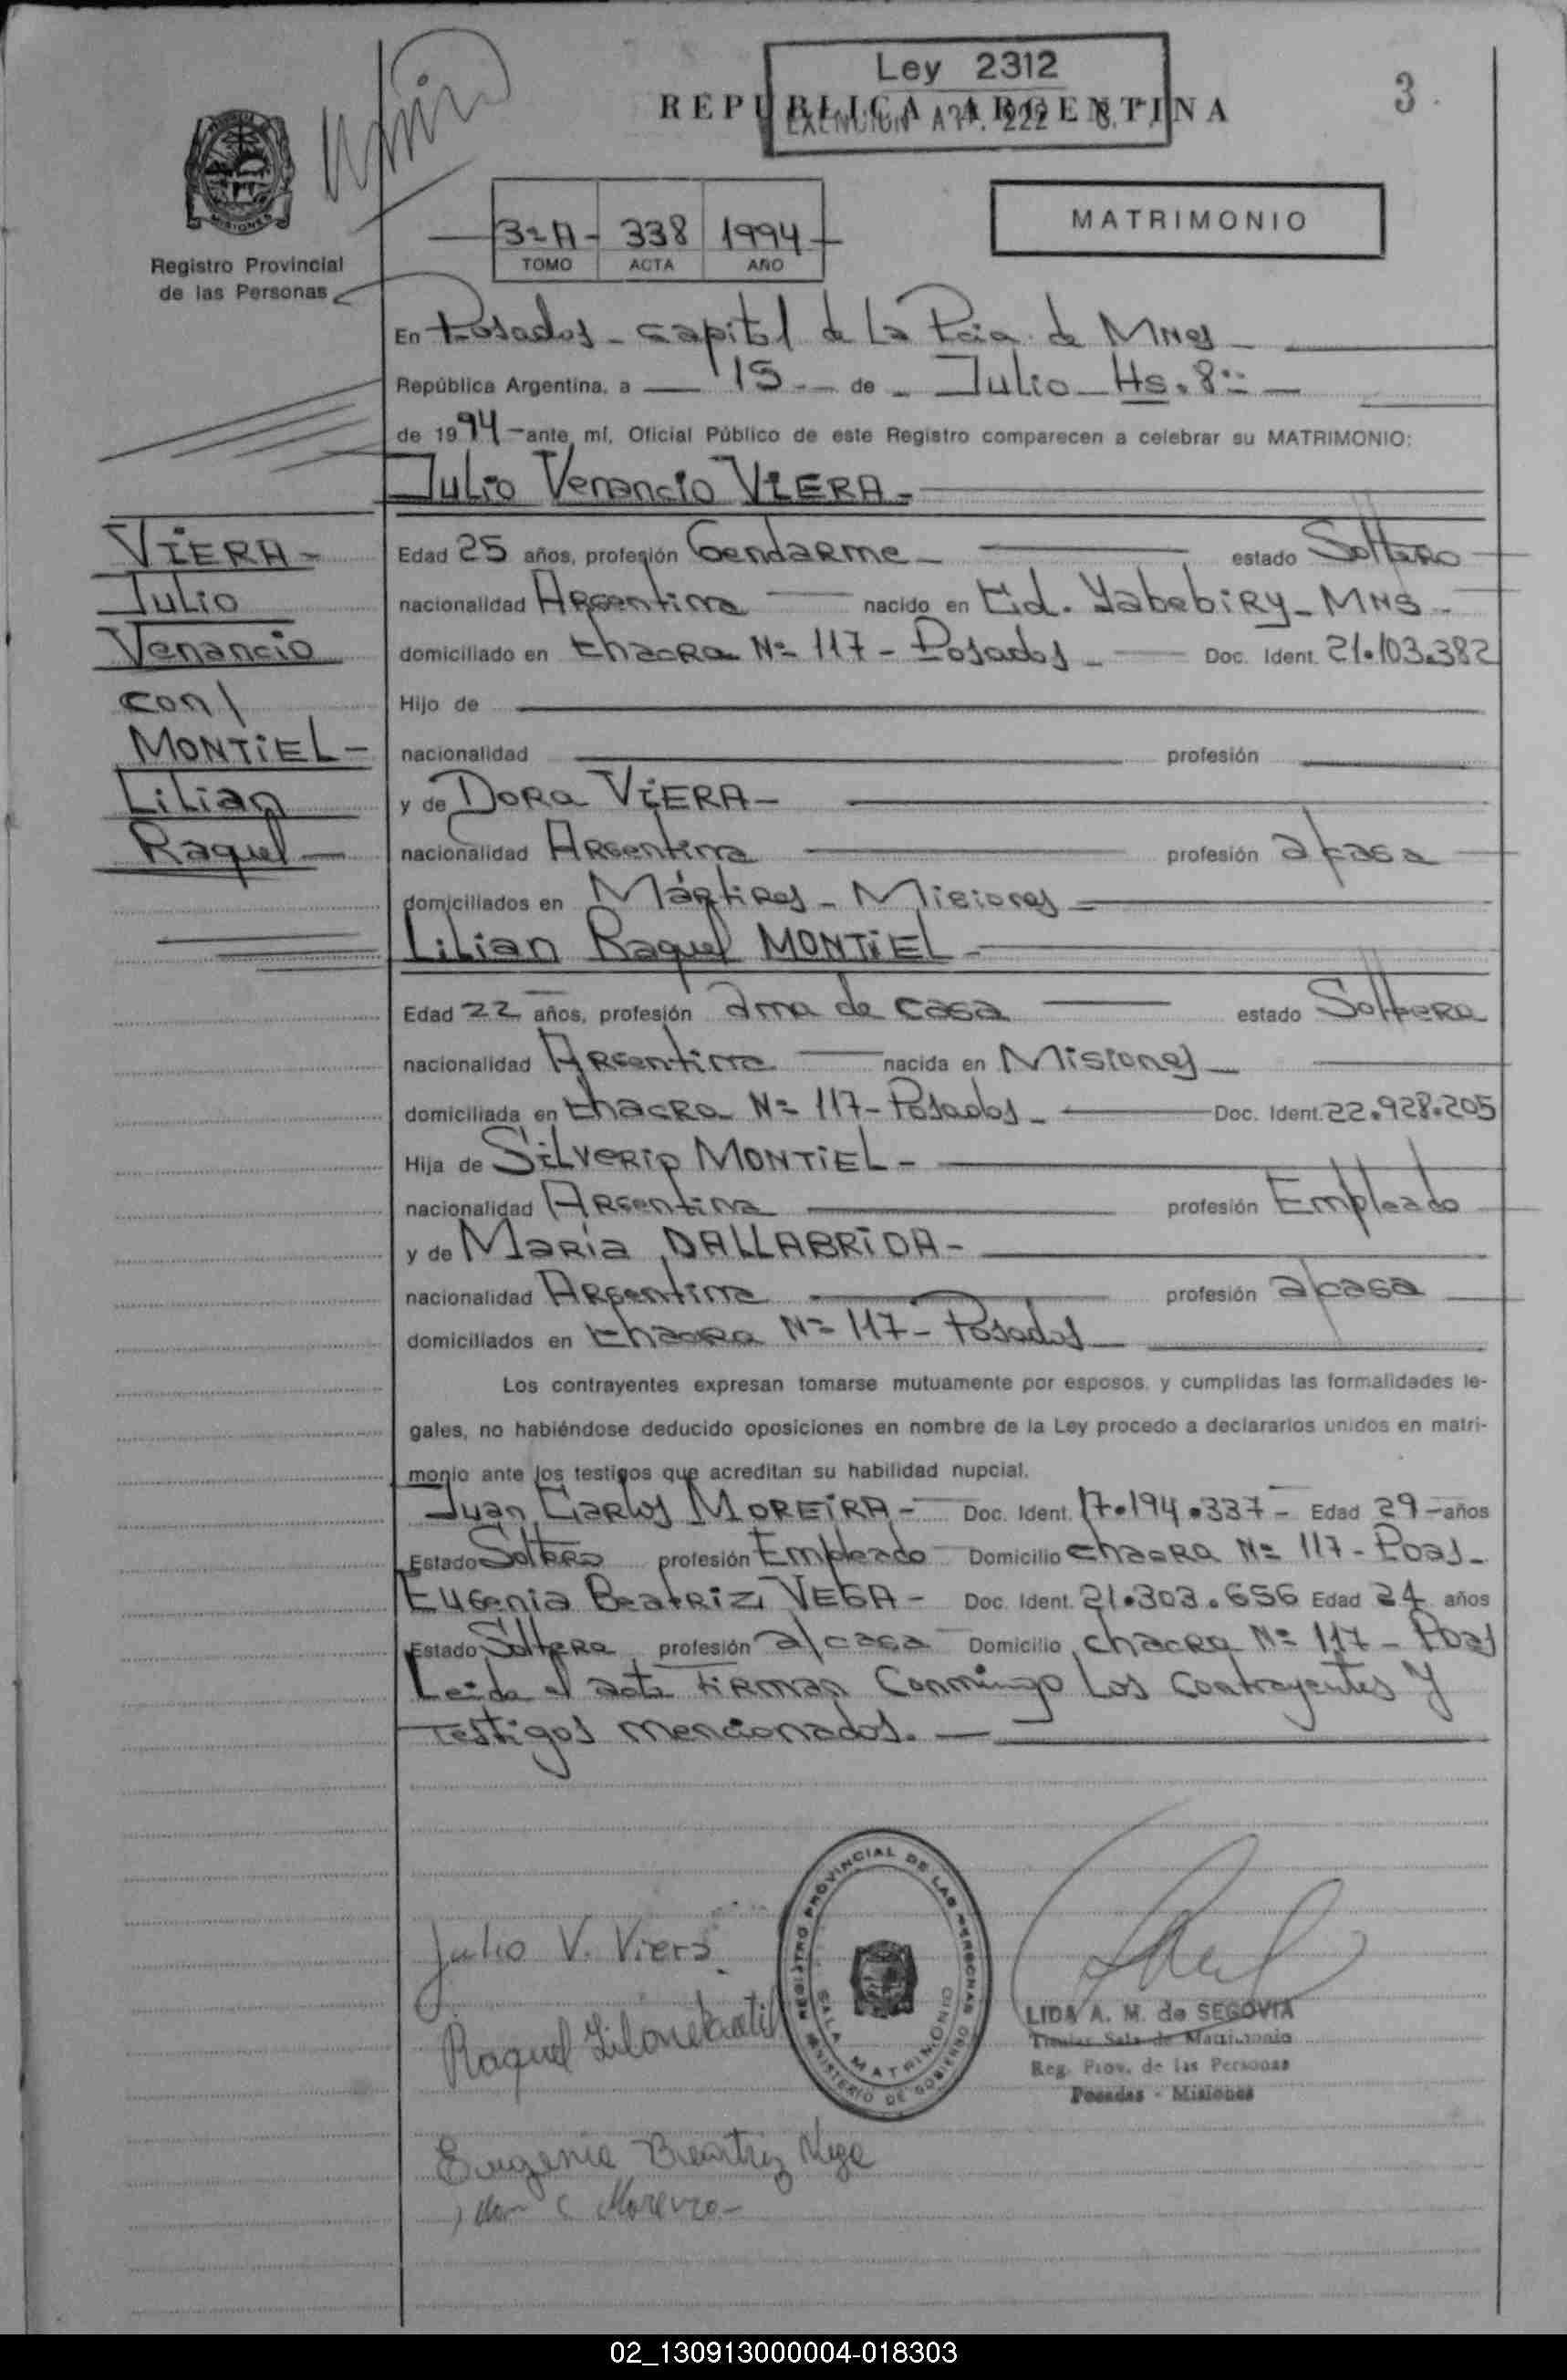 Ley 2312
REPUBLICA ARGENTINA
EXENCION Art. 222
3
MISIONES
Registro Provincial
de las Personas
3º A - 338 1994
TOMO ACTA AÑO
MATRIMONIO
En Posadas - Capital de La Pcia. de Mnes
República Argentina, a 15 de Julio Hs. 8
de 1994 - ante mí, Oficial Público de este Registro comparecen a celebrar su MATRIMONIO:
Julio Venancio VIERA -
VIERA -
Julio
Venancio
con/
MONTIEL -
Lilian
Raquel -
Edad 25 años, profesión Gendarme - estado Soltero
nacionalidad Argentina nacido en Cid. Yabebiry - MNS -
domiciliado en Chacra Nº 117 - Posadas - Doc. Ident. 21.103.382
Hijo de
nacionalidad profesión
y de Dora VIERA -
nacionalidad Argentina profesión a/casa
domiciliados en Mártires - Misiones
Lilian Raquel MONTIEL -
Edad 22 años, profesión ama de casa estado Soltera
nacionalidad Argentina nacida en Misiones
domiciliada en Chacra Nº 117 - Posadas - Doc. Ident. 22.928.205
Hija de Silverio MONTIEL -
nacionalidad Argentina profesión Empleado
y de Maria DALLABRIDA -
nacionalidad Argentina profesión a/casa
domiciliados en Chacra Nº 117 - Posadas
Los contrayentes expresan tomarse mutuamente por esposos, y cumplidas las formalidades le-
gales, no habiéndose deducido oposiciones en nombre de la Ley procedo a declararlos unidos en matri-
monio ante los testigos que acreditan su habilidad nupcial.
Juan Carlos MOREIRA - Doc. Ident. 17.194.337 - Edad 29 - años
Estado Soltero profesión Empleado Domicilio Chacra Nº 117 - Pdas -
Eugenia Beatriz VEGA - Doc. Ident. 21.303.656 Edad 24 años
Estado Soltera profesión a/casa Domicilio Chacra Nº 117 - Pdas
Leida el acta firman Conmingo Los Contrayentes y
Testigos mencionados. -
Julio V. Viera
Raquel
REGISTRO PROVINCIAL DE LAS PERSONAS
SALA MATRIMONIO
MINISTERIO DE GOBIERNO
LIDA A. M. de SEGOVIA
Titular Sala de Matrimonio
Reg. Prov. de las Personas
Posadas - Misiones
Eugenia Beatriz Vega
C Moreira -
02_130913000004-018303